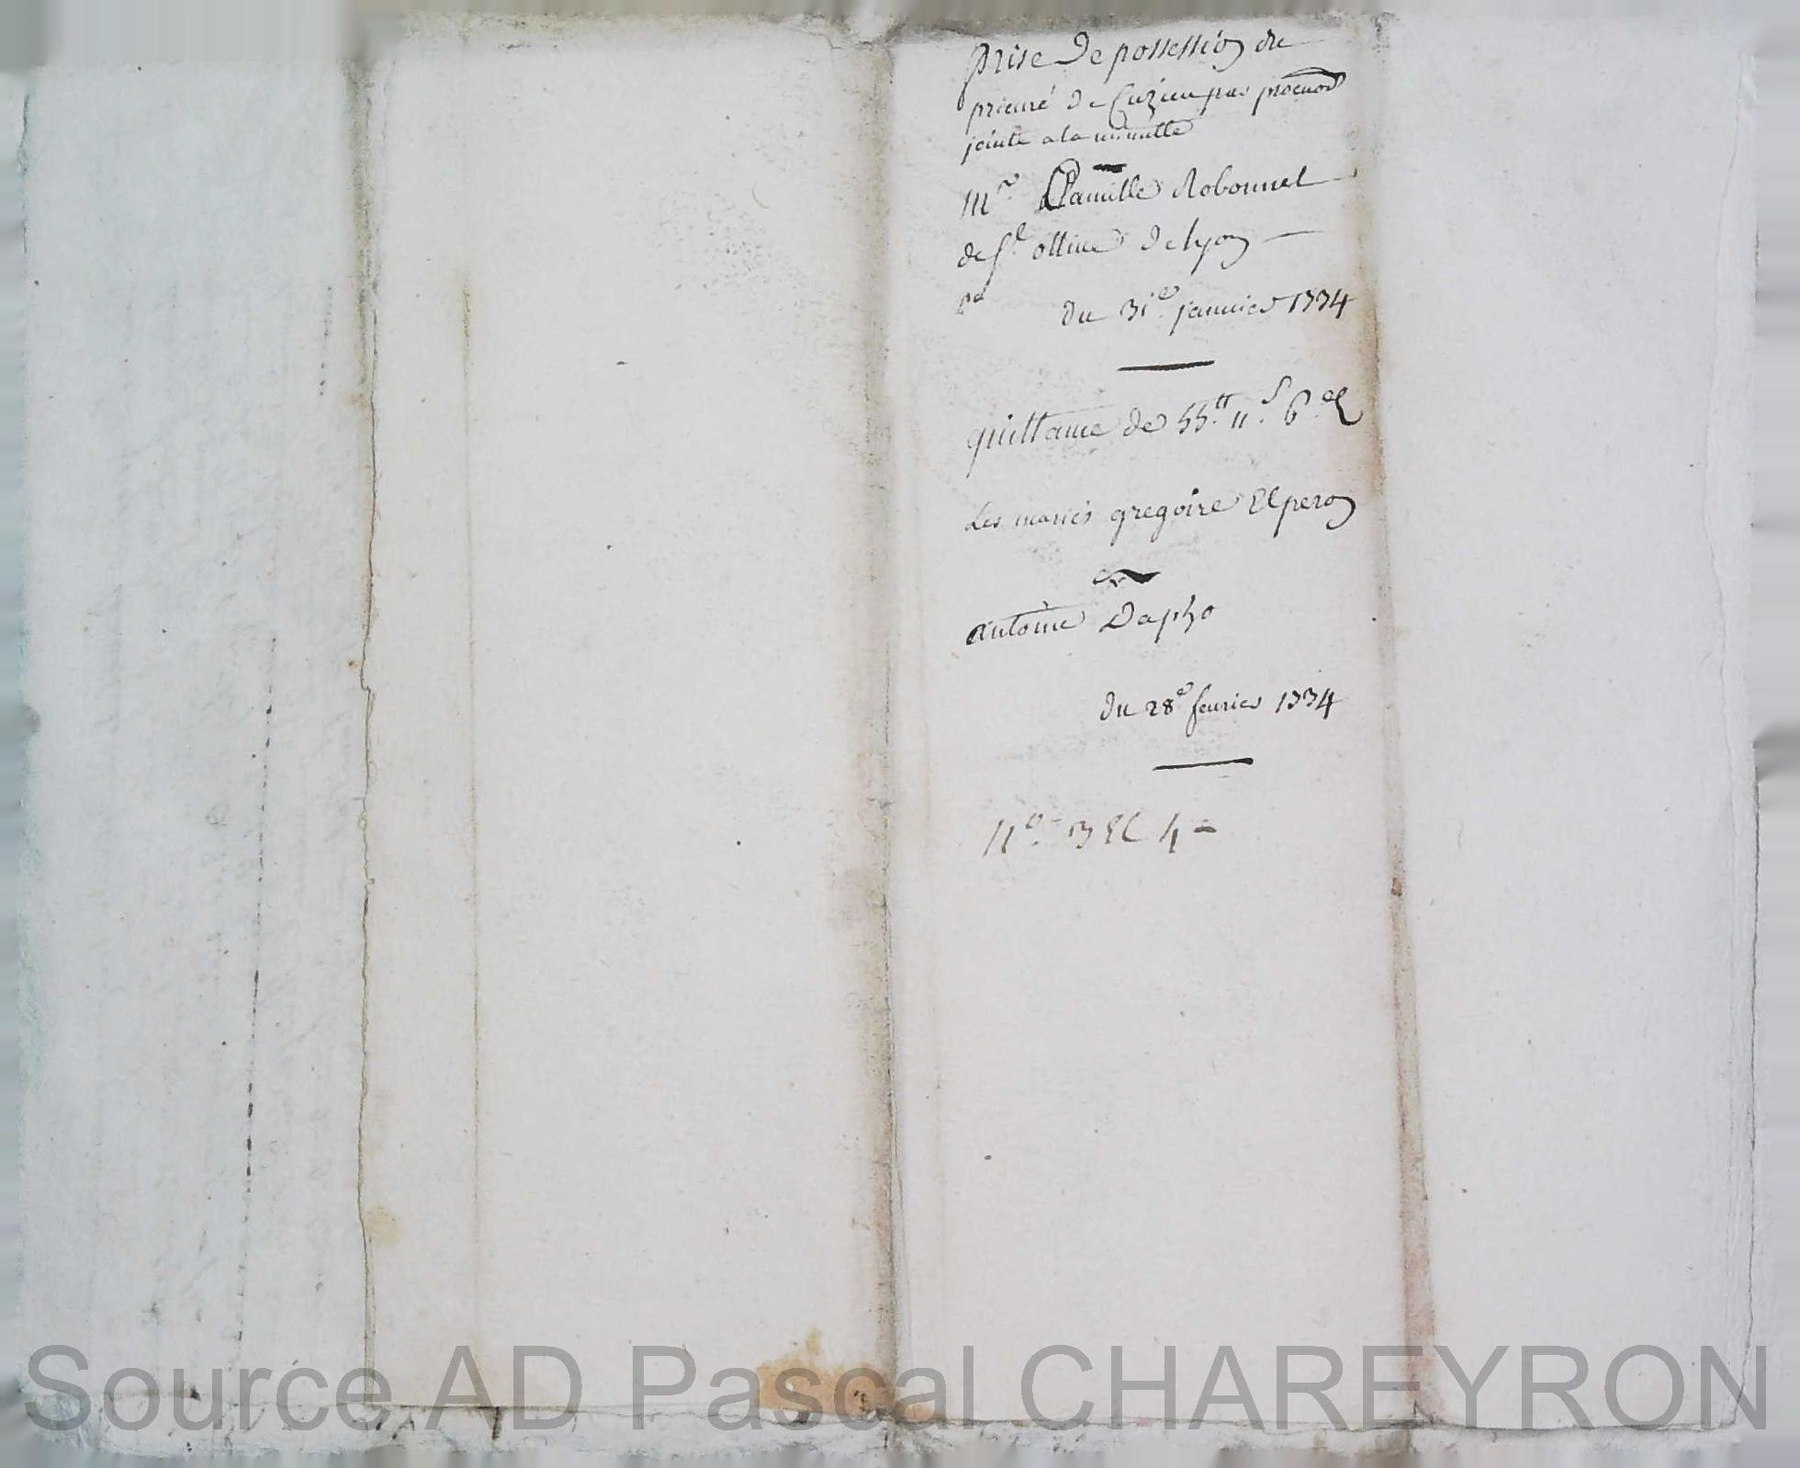 prise de possession du
prieuré de Cuzieu par procuon
jointe a la minutte
Mre Camille Robonnel
de St ollive de Lyon
du 31e janvier 1774
quittance de 55tt 11s 6d
Les mariés gregoire Et peron
antoine Dapho
du 28e fevrier 1774
No 3 Et 4
Source AD Pascal CHAREYRON